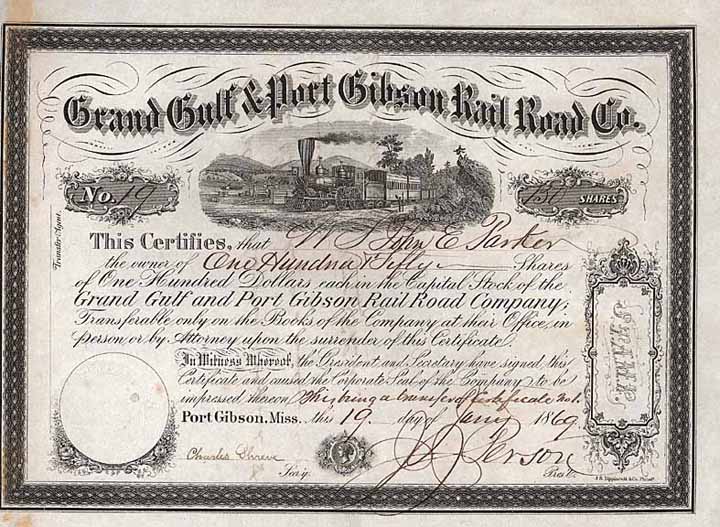 Grand Gulf & Port Gibson Rail Road Co.
No. 19
SHARES
Transfer Agent.
This Certifies, that W S John E Parker
the owner of One Hundred & Fifty Shares
of One Hundred Dollars each in the Capital Stock of the
Grand Gulf and Port Gibson Rail Road Company;
Transferable only on the Books of the Company at their Office, in
person, or by Attorney upon the surrender of this Certificate.
In Witness Whereof, the President and Secretary have signed this
Certificate and caused the Corporate Seal of the Company to be
impressed thereon, this being a transfer of certificate No 1.
Port Gibson, Miss. this 19. day of Jany 1869
STAMP
Charles Shreve
Sec'y.
Pres't.